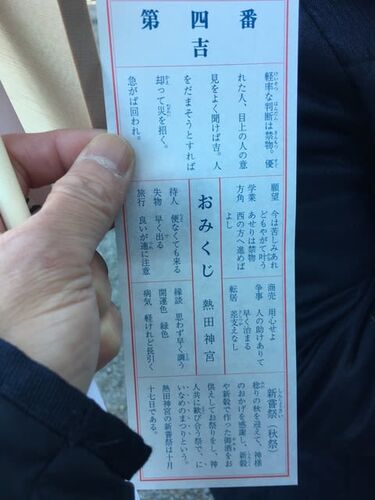 第四番
吉
軽率な判断は禁物。優
れた人、目上の人の意
見をよく聞けば吉。人
をだまそうとすれば
却って災を招く。
急がば回われ。
おみくじ 熱田神宮
願望 今は苦しみあれ
どもやがて叶う
学業 あせりは禁物
方角 西の方へ進めば
よし
待人 便なくても来る
失物 早く出る
旅行 良いが連に注意
商売 用心せよ
争事 人の助けありて
早く治まる
転居 差支えなし
縁談 思わず早く調う
開運色 緑色
病気 軽けれど長引く
新嘗祭(秋祭)
稔りの秋を迎えて、神様
のおかげを感謝し、新穀
や新穀で作った御酒をお
供えしてお祭りをし、神
人共に歓び合う祭で、に
いなめのまつりという。
熱田神宮の新嘗祭は十月
十七日である。